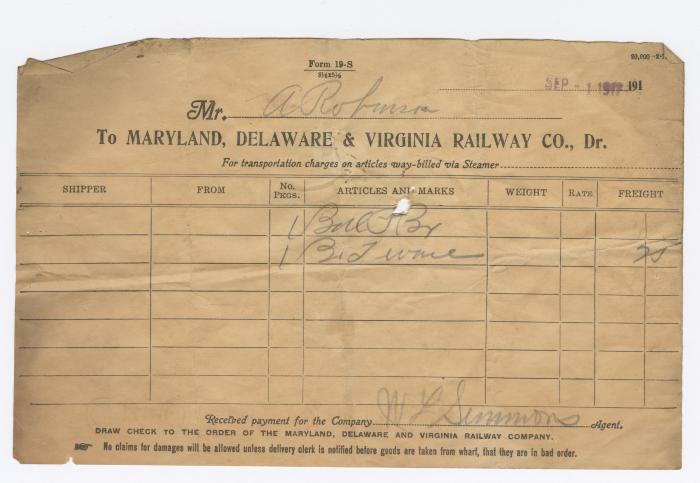 Form 19-S
8½x5½
20,000-2-1
SEP - 1 1912 191
Mr. A Robinson
To MARYLAND, DELAWARE & VIRGINIA RAILWAY CO., Dr.
For transportation charges on articles way-billed via Steamer
SHIPPER FROM No. Pkgs. ARTICLES AND MARKS WEIGHT RATE FREIGHT
1 Bx
1 25
Received payment for the Company W L Simmons Agent.
DRAW CHECK TO THE ORDER OF THE MARYLAND, DELAWARE AND VIRGINIA RAILWAY COMPANY.
☞ No claims for damages will be allowed unless delivery clerk is notified before goods are taken from wharf, that they are in bad order.